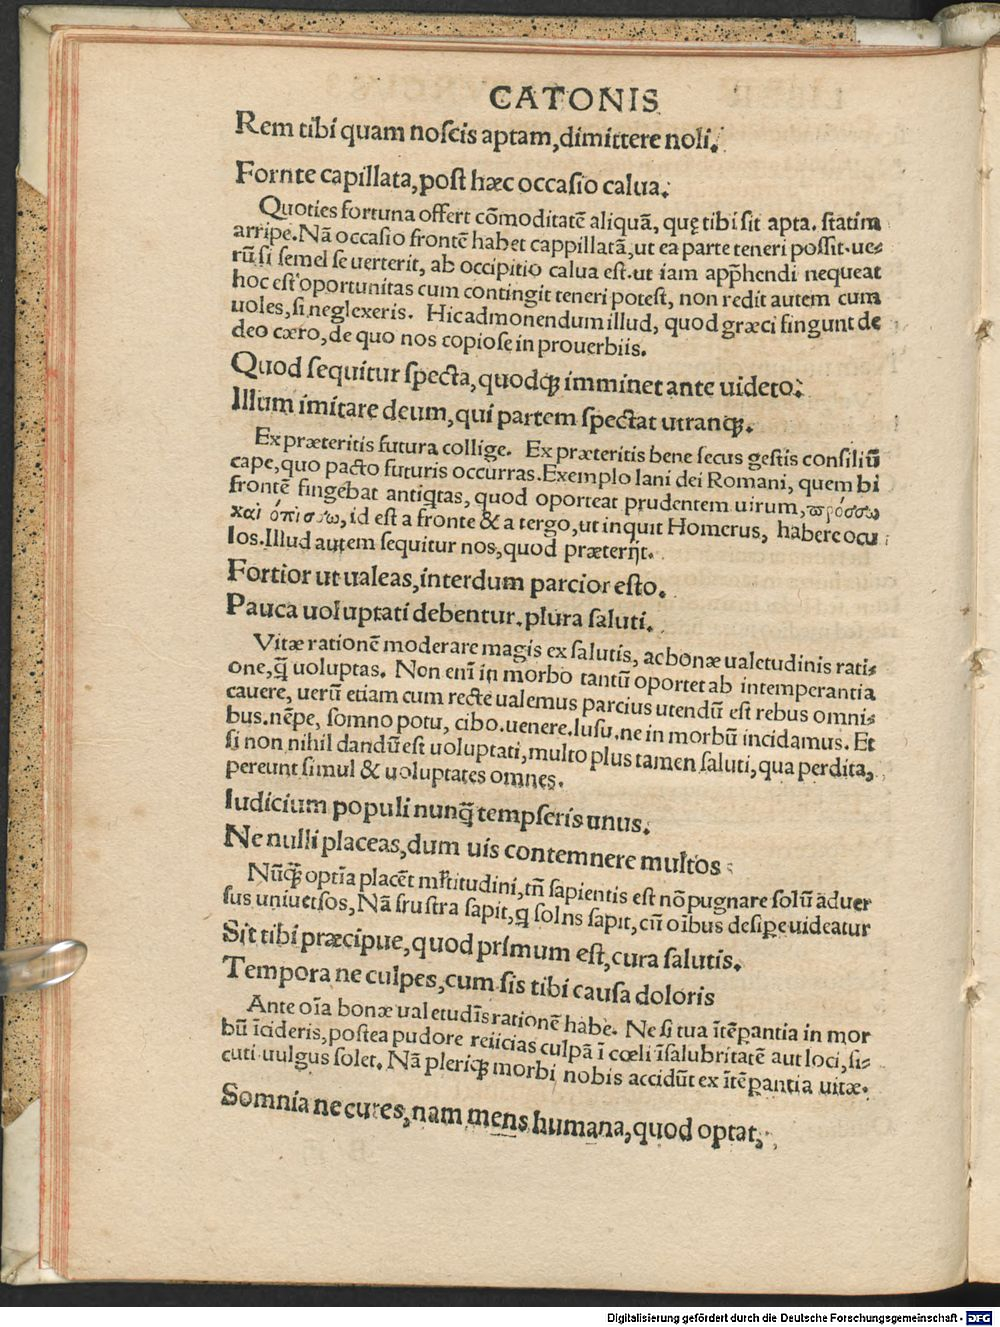 CATONIS
Rem tibi quam noſcis aptam,dimittere noli.
Fornte capillata,poſt hæc occaſio calua.
Quoties fortuna offert cõmoditatẽ aliquã, quę tibi ſit apta. ſtatim
arripe.Nã occaſio frontẽ habet cappillatã,ut ea parte teneri poſſit.ue⸗
rũ ſi ſemel ſe uerterit, ab occipitio calua eſt.ut iam app̃hendi nequeat
hoc eſt oportunitas cum contingit teneri poteſt, non redit autem cum
uoles,ſi neglexeris. Hic admonendum illud, quod græci fingunt de
deo cæro,de quo nos copioſe in prouerbiis.
Quod ſequitur ſpecta,quodqꝫ imminet ante uideto:
Illum imitare deum,qui partem ſpectat utranqꝫ.
Ex præteritis futura collige. Ex præteritis bene ſecus geſtis conſiliũ
cape,quo pacto futuris occurras.Exemplo Iani dei Romani, quem bi
frontẽ fingebat antiq̃tas, quod oporteat prudentem uirum,ϖρόσσω
καὶ ὀπισσω,id eſt a fronte & a tergo,ut inquit Homerus, habere ocu
los.Illud autem ſequitur nos,quod præterijt.
Fortior ut ualeas,interdum parcior eſto.
Pauca uoluptati debentur.plura ſaluti.
Vitæ rationẽ moderare magis ex ſalutis, ac bonæ ualetudinis rati⸗
one,q̃ uoluptas. Non enĩ in morbo tantũ oportet ab intemperantia
cauere, uerũ etiam cum recte ualemus parcius utendũ eſt rebus omni⸗
bus.nẽpe, ſomno potu, cibo.uenere.luſu.ne in morbũ incidamus. Et
ſi non nihil dandũ eſt uoluptati,multo plus tamen ſaluti,qua perdita,
pereunt ſimul & uoluptates omnes.
Iudicium populi nunq̃ tempſeris unus.
Ne nulli placeas,dum uis contemnere multos
Nũqꝫ̃ optĩa placẽt ml̃titudini,tñ ſapientis eſt nõ pugnare ſolũ aduer
ſus uniuetſos,Nã fruſtra ſapit,q̃ ſolns ſapit,cũ oĩbus deſiꝑe uideatur
Sit tibi præcipue,quod primum eſt,cura ſalutis.
Tempora ne culpes,cum ſis tibi cauſa doloris
Ante oĩa bonæ ualetudĩs rationẽ habe. Ne ſi tua ĩtẽꝑantia in mor
bũ ĩcideris,poſtea pudore reiicias culpã ĩ cœli ĩſalubritatẽ aut loci,ſi⸗
cuti uulgus ſolet. Nã pleriqꝫ morbi nobis accidũt ex ĩtẽꝑantia uitæ.
Somnia ne cures,nam mens humana,quod optat,
Digitalisierung gefördert durch die Deutsche Forschungsgemeinschaft - DFG